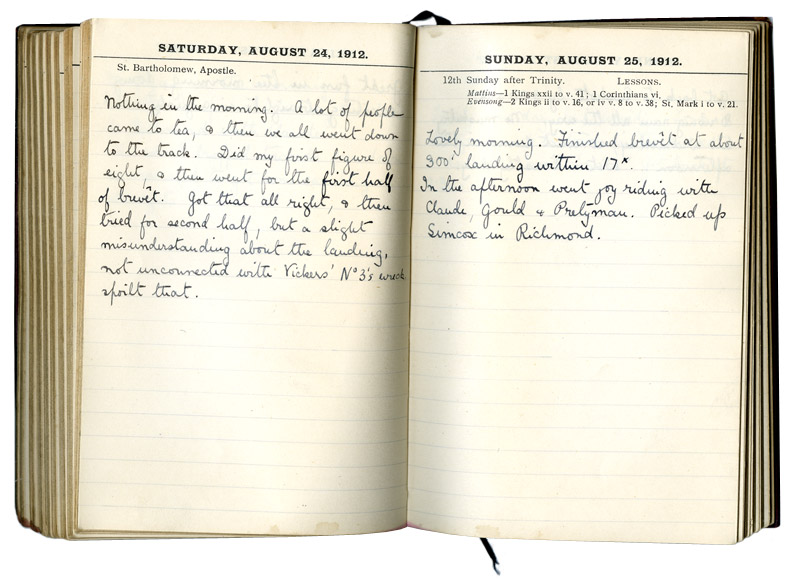 SATURDAY, AUGUST 24, 1912.
St. Bartholomew, Apostle.
Nothing in the morning. A lot of people
came to tea, & then we all went down
to the track. Did my first figure of
eight, & then went for the first half
of brevêt. Got that all right, & then
tried for second half, but a slight
misunderstanding about the landing,
not unconnected with Vickers' Nº 3's wreck
spoilt that.
SUNDAY, AUGUST 25, 1912.
12th Sunday after Trinity. LESSONS.
Mattins—1 Kings xxii to v. 41; 1 Corinthians vi.
Evensong—2 Kings ii to v. 16, or iv v. 8 to v. 38; St. Mark i to v. 21.
Lovely morning. Finished brevêt at about
900' landing within 17ˣ.
In the afternoon went joy riding with
Claude, Gould & Prelyman. Picked up
Simcox in Richmond.